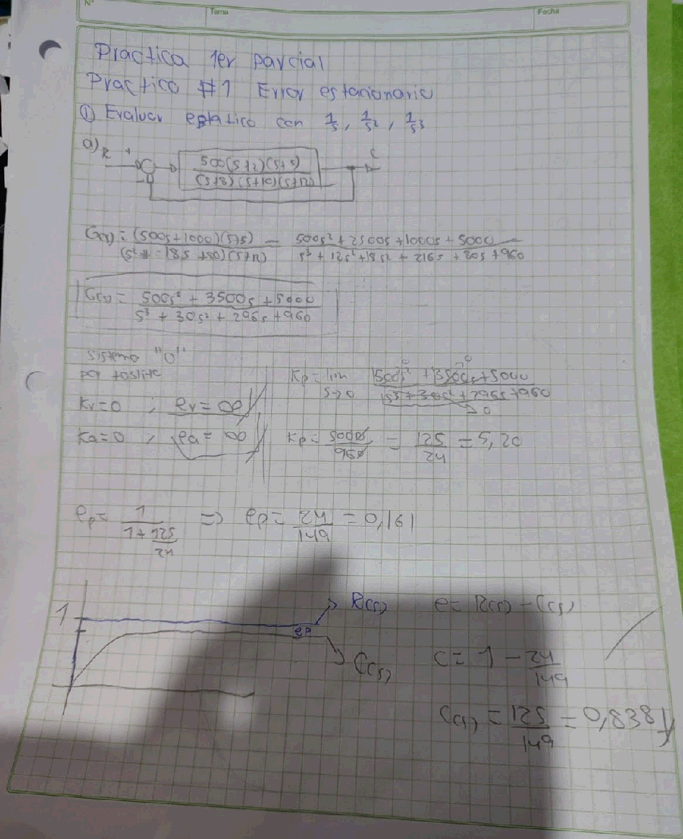 N°
Tema
Fecha
Practica 1er parcial
Practico #1 Error estacionario
① Evaluar estatico con 1/s, 1/s², 1/s³
a) R + - 500(s+2)(s+5) / (s+8)(s+10)(s+12) C
G(s) = (500s+1000)(s+5) / (s²+18s+80)(s+12) = 500s²+2500s+1000s+5000 / s³+12s²+18s²+216s+80s+960
G(s) = 500s²+3500s+5000 / s³+30s²+296s+960
Sistema "0"
Kp = lim s→0 500s²+3500s+5000 / s³+30s²+296s+960
Kv=0 ; ev=∞
Ka=0 ; ea=∞
Kp = 5000/960 = 125/24 = 5,20
ep = 1 / 1+125/24 => ep = 24/149 = 0,161
1
R(s)
ep
C(s)
e = R(s) - C(s)
C = 1 - 24/149
C(s) = 125/149 = 0,838